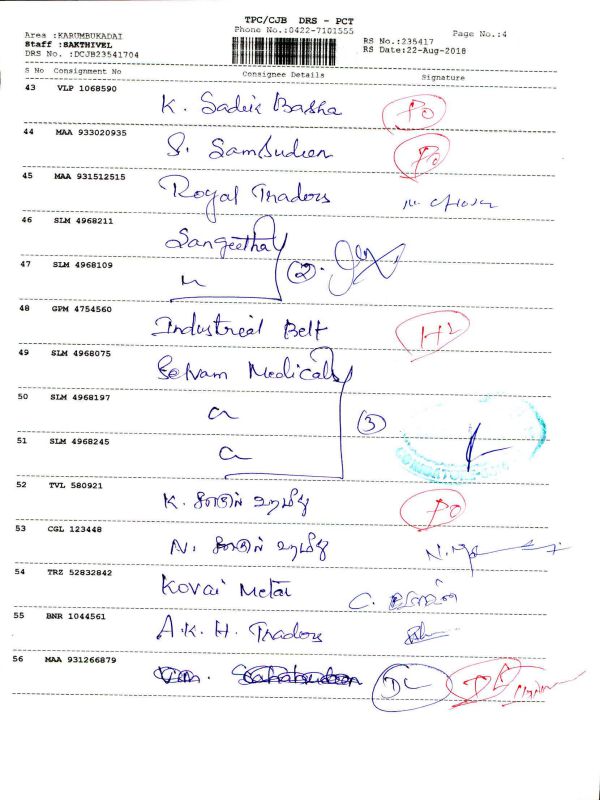 TPC/CJB DRS - PCT
Area :KARUMBUKADAI
Phone No.:0422-7101555
Page No.:4
Staff :SAKTHIVEL
RS No.:235417
DRS No. :DCJB23541704
RS Date:22-Aug-2018
S No Consignment No Consignee Details Signature
43 VLP 1068590
K. Sadik Basha PO
44 MAA 933020935
S. Samsudeen PO
45 MAA 931512515
Royal Traders
46 SLM 4968211
Sangeetha
47 SLM 4968109
②
48 GPM 4754560
Industrial Belt
49 SLM 4968075
Selvam Medicals
50 SLM 4968197
③
51 SLM 4968245
52 TVL 580921
K. PO
53 CGL 123448
N.
54 TRZ 52832842
Kovai Metal C.
55 BNR 1044561
A.K.H. Traders
56 MAA 931266879
DC